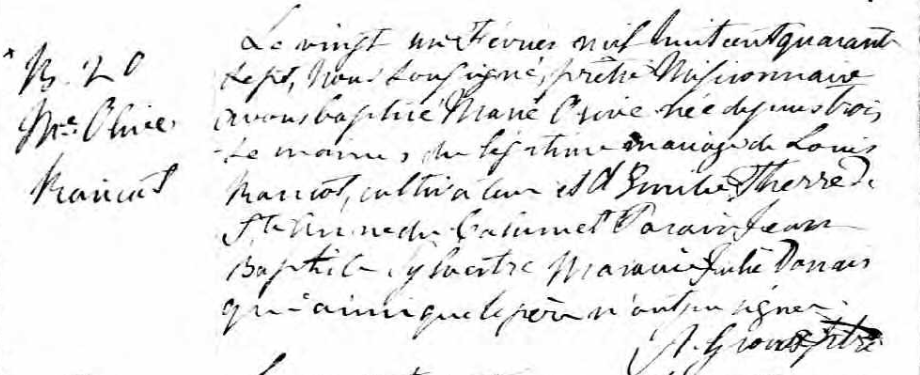 B. 20
Mie. Olive
Rancot
Le vingt un Février mil huit cent quarante
sept, Nous Soussigné, prêtre Missionnaire
avons baptisé Marie Olive née depuis trois
semaines, du légitime mariage de Louis
Rancot, cultivateur et d'Emilie Therre de
Ste Anne du Calumet Parain Jean
Baptiste Sylvestre Maraine Julie Danais
qui ainsi que le père n'ont su signer.
Ptre